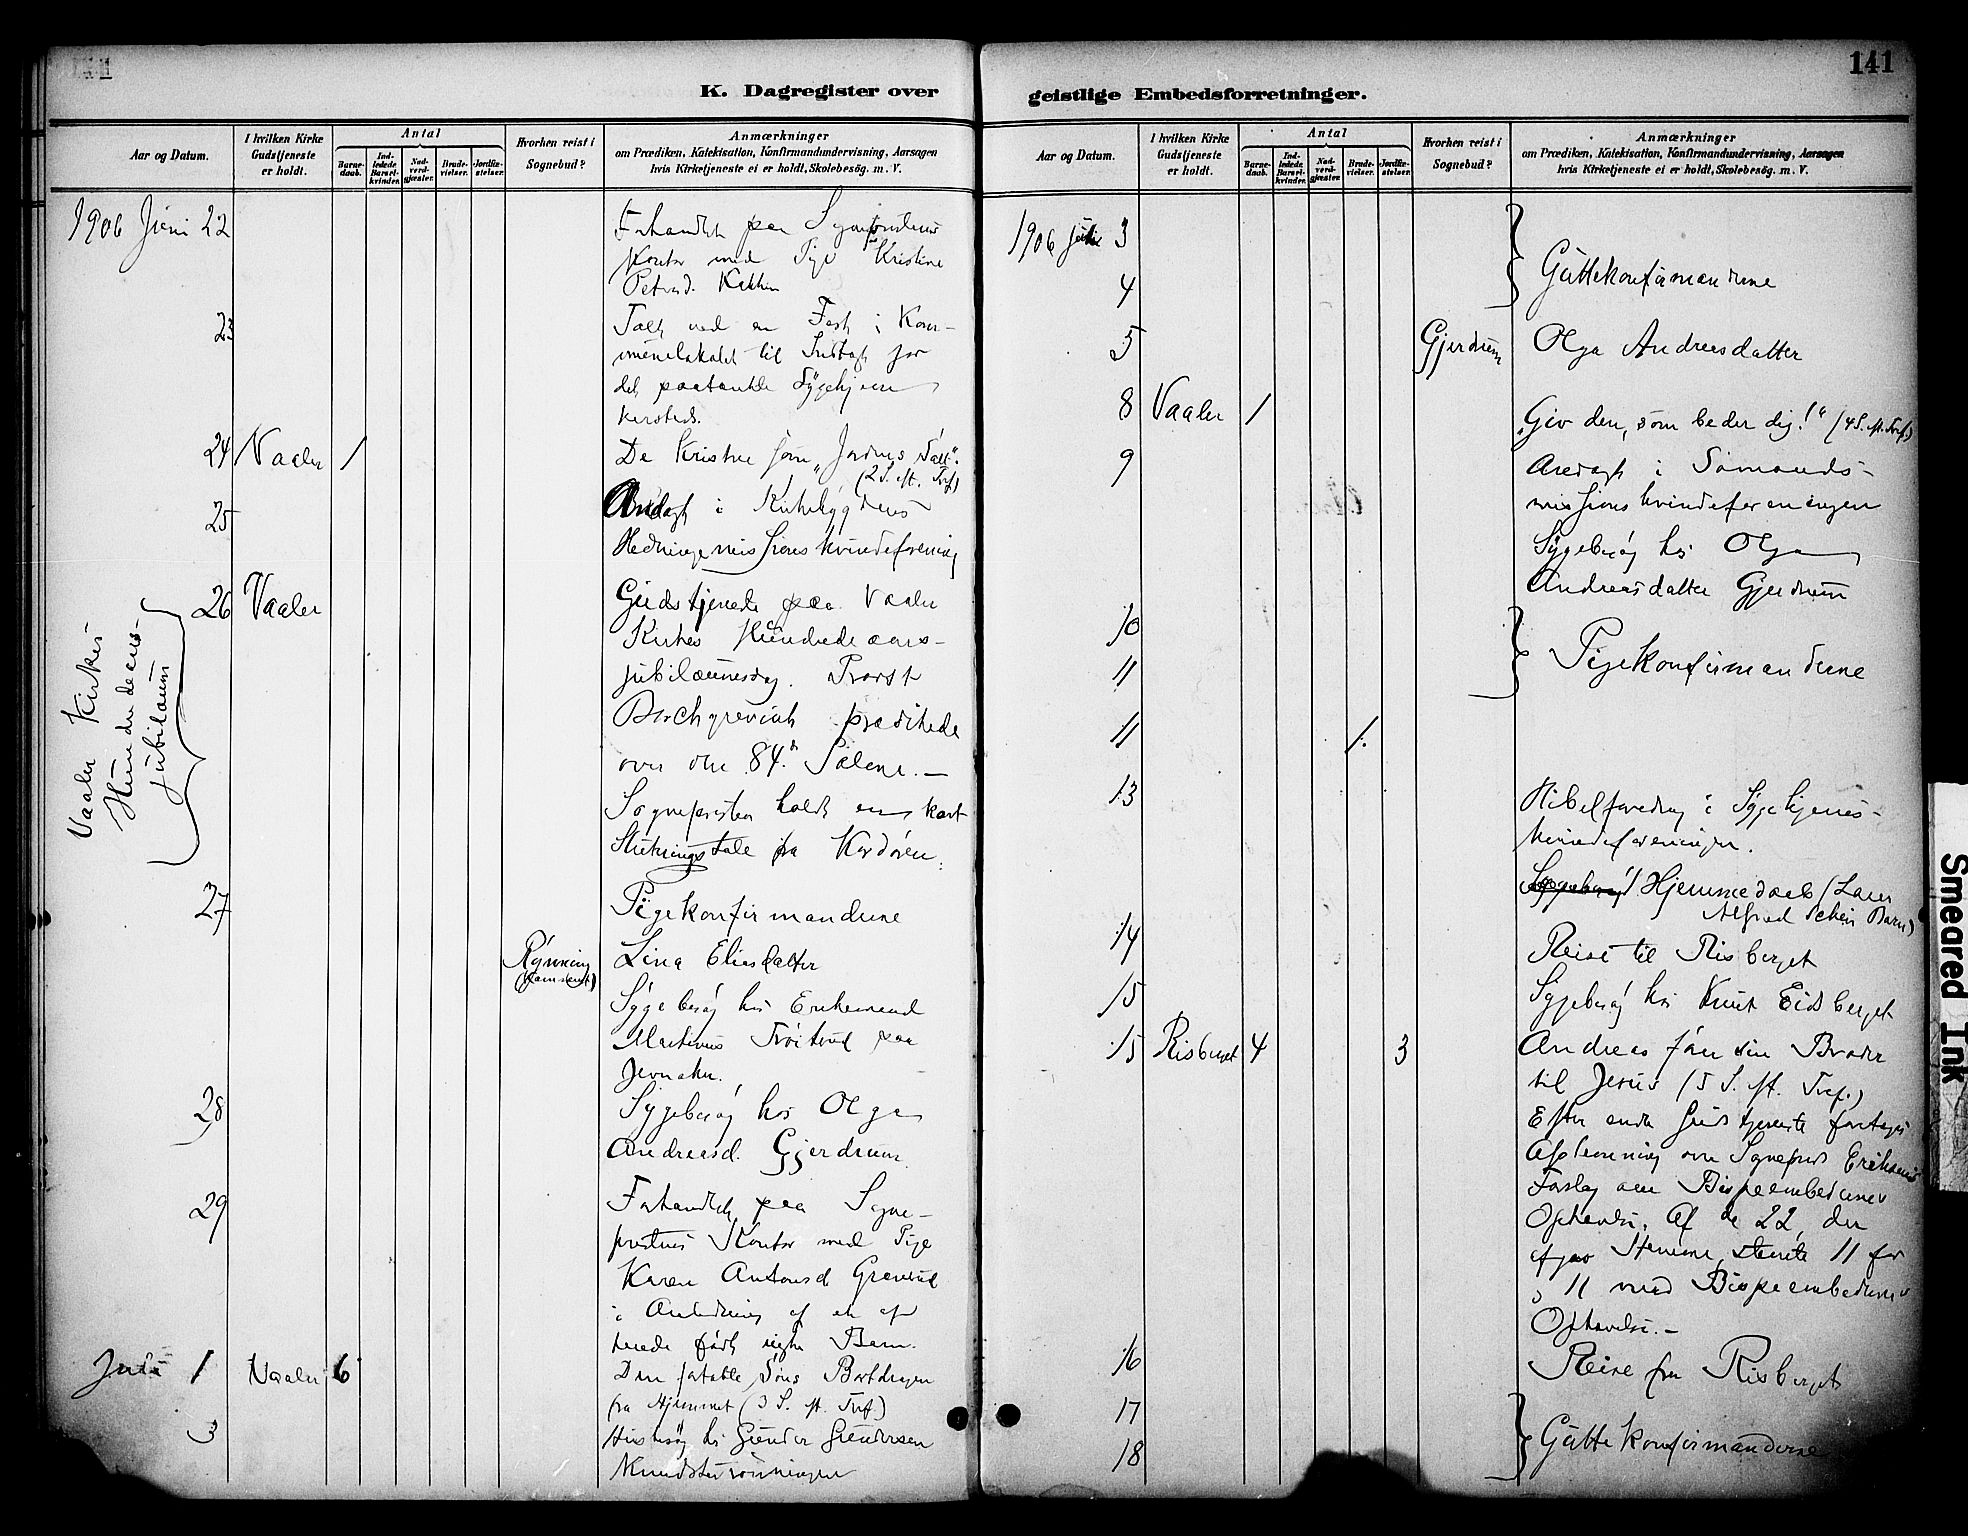 141
K. Dagregister over
geistlige Embedsforretninger.
Aar og Datum.
I hvilken Kirke Gudstjeneste er holdt.
Antal
Barne-daab.
Ind-ledede Barsel-kvinder.
Nad-verd-gjæster.
Brude-vielser.
Jordfæ-stelser.
Hvorhen reist i Sognebud?
Anmærkninger
om Prædiken, Katekisation, Konfirmandundervisning, Aarsagen
hvis Kirketjeneste ei er holdt, Skolebesøg. m. V.
1906 Juni 22
Forhandlet paa Sogneprestens
Kontor med Pige Kristine
Petersd.
23
Talt ved en Fest i Kom-
munelokalet til Indtægt for
det paatænkte Sygehjem
24 Vaaler 1
De Kristne som "Jordens Salt".
(2 S. eft. Tref.)
25
Andagt i Kirkebygdens
Hedningemissions kvindeforening
26 Vaaler
Vaaler Kirkes
Hundredeaars-
jubilæum
Gudstjeneste paa Vaaler
Kirkes Hundredeaars-
jubilæumsdag. Provst
Borchgrevink prædikede
over den 84de Salme. —
Sognepresten holdt en kort
Slutningstale fra Kordøren.
27
Pigekonfirmanderne
Rønning
Lina Eliasdatter
Sygebesøg hos Enkemand
Martinus Trøitrud paa
28
Sygebesøg hos Olga
Andreasd. Gjerdrum.
29
Forhandlet paa Sogne-
prestens Kontor med Pige
Karen Antonsd
i Anledning af et af
hende født uægte Barn.
Juli 1 Vaaler 6
Den fortabte Søns Bortdragen
fra Hjemmet (3 S. eft. Tref.)
3
Husbesøg hos Gunder Gundersen
Aar og Datum.
I hvilken Kirke Gudstjeneste er holdt.
Antal
Barne-daab.
Ind-ledede Barsel-kvinder.
Nad-verd-gjæster.
Brude-vielser.
Jordfæ-stelser.
Hvorhen reist i Sognebud?
Anmærkninger
om Prædiken, Katekisation, Konfirmandundervisning, Aarsagen
hvis Kirketjeneste ei er holdt, Skolebesøg. m. V.
1906 Juli 3
4
Guttekonfirmanderne
5 Gjerdrum Olga Andreasdatter
8 Vaaler 1
"Giv den, som beder dig!" (4 S. eft. Tref.)
9
Andagt i Sømands-
missions kvindeforeningen
Sygebesøg hos Olga
Andreasdatter Gjerdrum
10
11
Pigekonfirmanderne
11 1.
13
Bibelforedrag i Sygehjems-
kvindeforeningen.
Sygebesøg Hjemmedaab (Lars
Alfred Barn)
14
Reise til Risberget
15
Sygebesøg hos Knut Eidsberget
15 Risberget 4 3
Andreas fører sin Broder
til Jesus (5 S. eft. Tref.)
Efter endt Gudstjeneste foretoges
Afstemning over Sognepr. Eriksens
Forslag om Bispeembedernes
Ophævelse. Af de 22, der
afgav Stemme, stemte 11 for
og 11 mod Bispeembedernes
Ophævelse. —
16
Reise fra Risberget
17
18
Guttekonfirmanderne
Smeared Ink